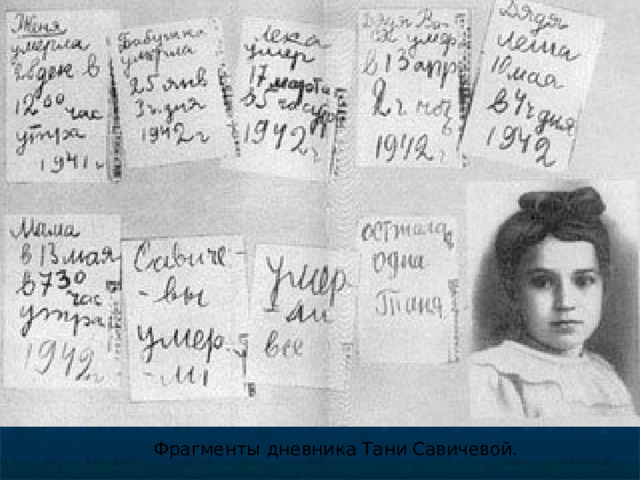 Женя
умерла
28 дек в
12 00 час
утра
1941 г
Бабушка
умерла
25 янв
3 ч. дня
1942 г
Лека
умер
17 марта
в 5 час утр
1942 г
Дядя Ва-
ся умер
в 13 апр
2 ч ноч
в
1942 г
Дядя
Леша
10 мая
в 4 ч дня
1942
Мама
в 13 мая
в 7 30
час
утра
1942 г
Савиче-
-вы
умер-
-ли
умер
-ли
все
осталась
одна
Таня
Фрагменты дневника Тани Савичевой.